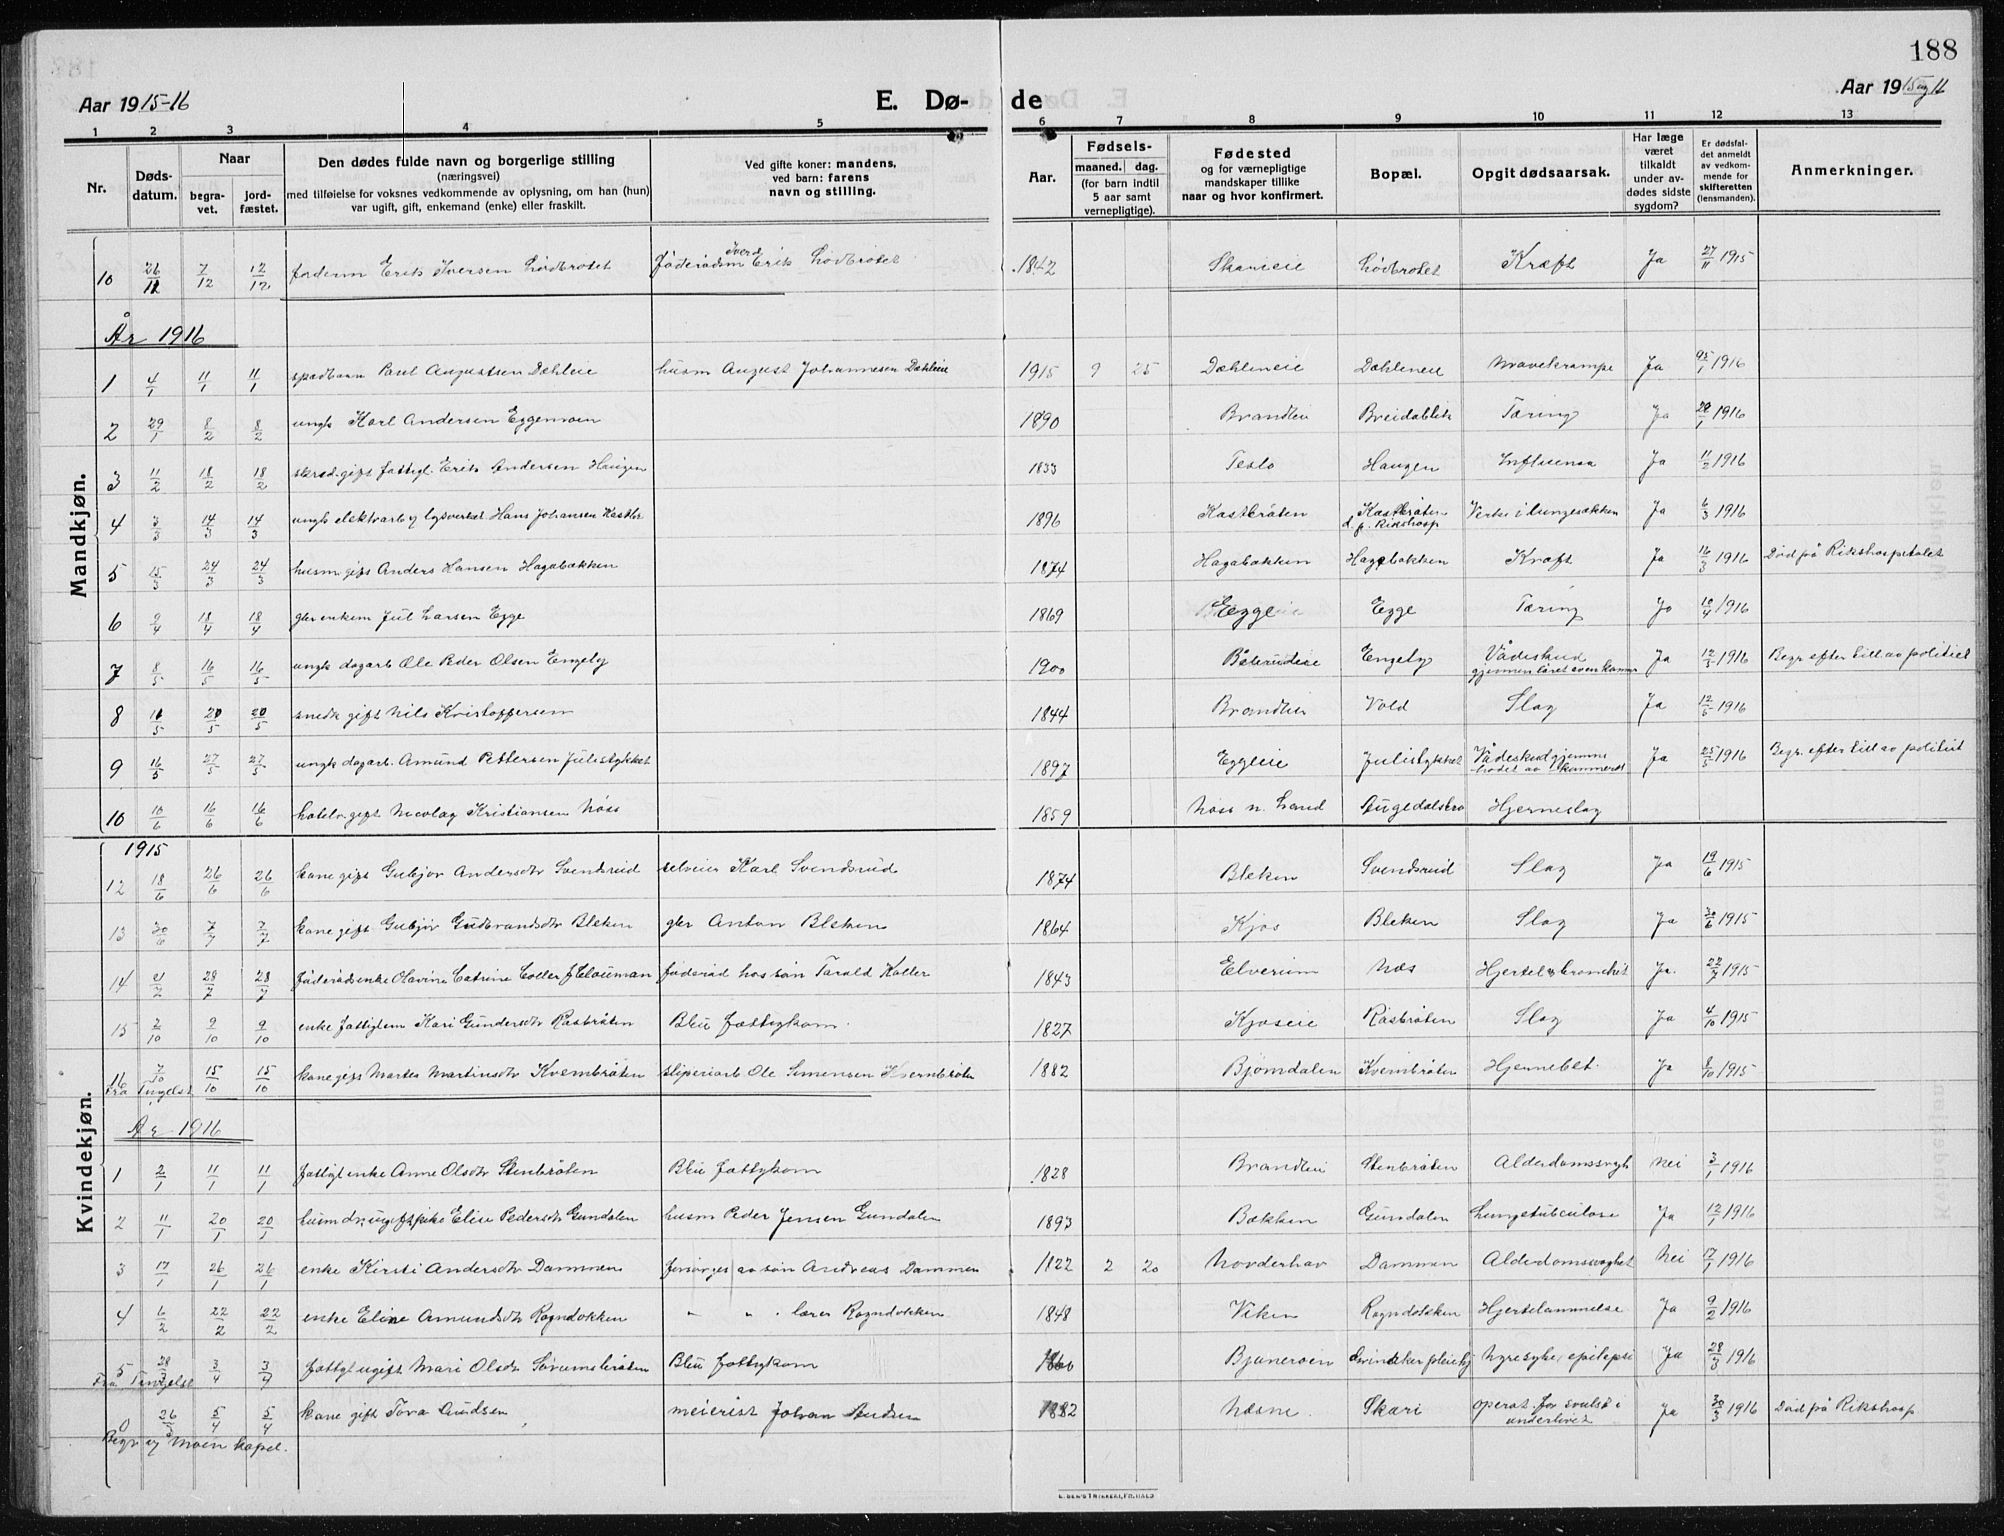 188
Aar 1915-16
E. Dø-
de
Aar 1915 og 16
1 2 3 4 5 6 7 8 9 10 11 12 13
Nr.
Døds-
datum.
Naar
begra-
vet.
jord-
fæstet.
Den dødes fulde navn og borgerlige stilling
(næringsvei)
med tilføielse for voksnes vedkommende av oplysning, om han (hun)
var ugift, gift, enkemand (enke) eller fraskilt.
Ved gifte koner: mandens,
ved barn: farens
navn og stilling.
Aar.
Fødsels-
maaned. dag.
(for barn indtil
5 aar samt
vernepligtige).
Fødested
og for værnepligtige
mandskaper tillike
naar og hvor konfirmert.
Bopæl.
Opgit dødsaarsak.
Har læge
været
tilkaldt
under av-
dødes sidste
sygdom?
Er dødsfal-
det anmeldt
av vedkom-
mende for
skifteretten
(lensmanden).
Anmerkninger.
Mandkjøn.
10 26/11 7/12 12/12 foderm Erik Iversen Lødbrotet Föderådsm Iver Erik Lodbrotet 1842 Skarieie Lödbrotet Kræft Ja 27/11 1915
År 1916
1 4/1 11/1 11/1 spædbarn Paul Augustsen Dæhleie husm August Johannesen Dæhleie 1915 9 25 Dæhleneie Dæhleneie Mavekrampe Ja 1916
2 29/1 8/2 8/2 ungk Karl Andersen Eggemoen 1890 Brandleie Breidablik Tæring Ja 1916
3 11/2 18/2 18/2 skræd. gift fattigl. Erik Andersen Haugen 1833 Teslo Haugen Influensa Ja 11/2 1916
4 3/3 14/3 14/3 ungk elektrarb og lysverket Hans Johansen Kastbr 1896 Kastbråten Kastbråten d. p. Rikshosp Verke i lungesækken Ja 6/3 1916
5 15/3 24/3 24/3 husm. gift Anders Hansen Hagabakken 1874 Hagabakken Hagabakken Kræft Ja 16/3 1916 Död på Rikshospitalet
6 9/4 18/4 18/4 gbr enkem Jul Larsen Egge 1869 Eggeie Egge Tæring Ja 10/4 1916
7 8/5 16/5 16/5 ungk dagarb Ole Peder Olsen Engeby 1900 Engeby Vådeskud gjennem låret av en kamer Ja 12/5 1916 Begr. efter till av politiet
8 11/5 20/5 20/5 snedk gift Nils Kristoffersen 1844 Brandleie Vold Slag Ja 12/5 1916
9 16/5 27/5 27/5 ungk dagarb. Amund Pettersen Julistykket 1897 Eggeie Julistykket Vådeskud gjennem hodet av kamerat Ja 25/5 1916 Begr. efter till av politiet
10 10/6 16/6 16/6 hotelv. gift Nicolay Kristiansen Nöss 1859 Nöss n. Land Augedalsbro Hjerneslag
Kvindekjøn.
1915
12 18/6 26/6 26/6 kone gift Gubjør Andersdtr Svendsrud selveier Karl Svendsrud 1874 Bleken Svendsrud Slag Ja 19/6 1915
13 30/6 7/7 7/7 kone gift Gubjør Gudbrandsdtr Bleken gbr Anton Bleken 1864 Kjos Bleken Slag Ja 30/6 1915
14 21/7 28/7 28/7 föderådsenke Olavine Catrine Koller f Clouman föderåd hos sön Tarald Koller 1843 Elverum Næs Hjertel & bronchit Ja. 22/7 1915
15 2/10 9/10 9/10 enke fattiglem Kari Gundersdtr Råsbråten Blei fattigkom. 1827 Kjoseie Råsbråten Slag Ja 4/10 1915
16 7/10 15/10 15/10 kone gift Martea Martinsdtr Kvernbråten sliperiarb Ole Simensen Kvernbråten 1882 Bjørndalen Kvernbråten Hjernebet. Ja 8/10 1915
Fra Tingelst
År 1916
1 2/1 11/1 11/1 fattigl enke Anne Olsdtr Stenbråten Blei fattigkom 1828 Brandleie Stenbråten Alderdomssvagh Nei 3/1 1916
2 11/1 20/1 20/1 husmdtr ugift pike Elise Pedersdtr Gundalen husm Peder Jensen Gundalen 1893 Bakken Gundalen Lungetubculose Ja 12/1 1916
3 17/1 26/1 26/1 enke Kirsti Andersdtr Dammen forsørges av sön Andreas Dammen 1822 2 20 Norderhov Dammen Alderdomssvaghet Nei 17/1 1916
4 6/2 22/2 22/2 enke Eline Amundsdtr Rogndokken " " . lærer Rogndokken 1848 Viken Rogndokken Hjertelammelse Ja 9/2 1916
5 28/3 3/4 3/4 fattigl ugift Mari Olsdtr Sörumsbråten Blei fattigkom 1860 Bjoneroen Nyresyke, epilepsi Ja 28/3 1916
Fra Tingelst
6 26/3 5/4 5/4 kone gift Tora Audsen meierist Johan Audsen 1882 Næsne. Skari operat. for svulst i underlivet Ja 30/3 1916 Död på Rikshosp
Begr og Moen kapel.